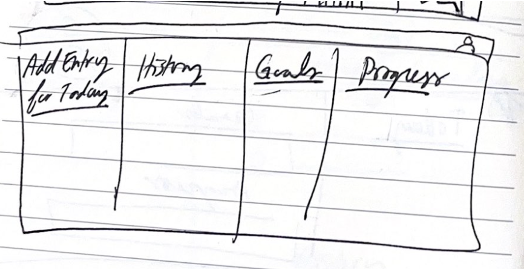 Add Entry
for Today
History
Goals
Progress